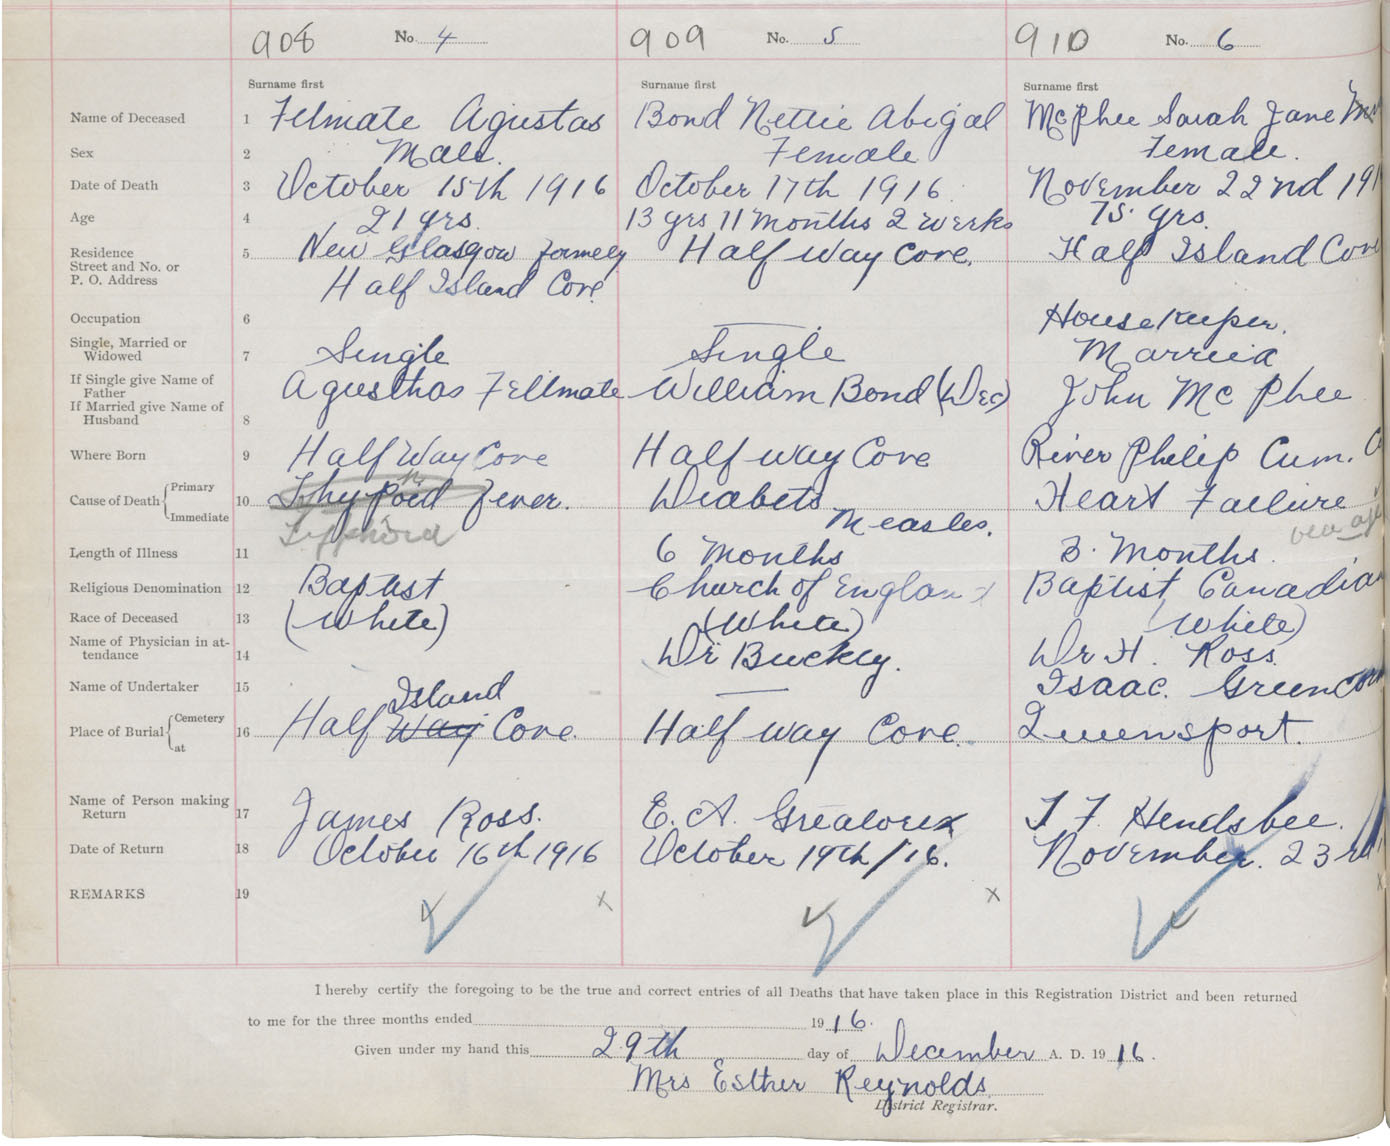 908 No. 4 909 No. 5 910 No. 6
Surname first Surname first Surname first
Name of Deceased 1 Felmate Agustas Bond Nettie Abigal McPhee Sarah Jane Mrs
Sex 2 Male. Female Female.
Date of Death 3 October 15th 1916 October 17th 1916 November 22nd 191
Age 4 21 yrs. 13 yrs 11 Months 2 weeks 75 yrs.
Residence 5 New Glasgow formely Half Way Cove. Half Island Cove
Street and No. or
P. O. Address Half Island Cove
Occupation 6 Housekeeper.
Single, Married or
Widowed 7 Single Single Married
If Single give Name of
Father Agusthas Fellmate William Bond (Dec) John McPhee
If Married give Name of
Husband 8
Where Born 9 Half Way Cove Half way Cove River Philip Cum. Co
Cause of Death Primary
Immediate 10 Thypoid fever. Diabets Measles. Heart Faeliure
Typhoid
Length of Illness 11 6 Months 3. Months.
Religious Denomination 12 Baptist Church of England Baptist Canadian
Race of Deceased 13 (White) (White) (White)
Name of Physician in at-
tendance 14 Dr Buckley. Dr H. Ross.
Name of Undertaker 15 Isaac. Greencorn
Island
Place of Burial Cemetery
at 16 Half Way Cove. Half way Cove. Queensport.
Name of Person making
Return 17 James Ross. E. A. Greatorex T F. Hendsbee.
Date of Return 18 October 16th 1916 October 19th/16. November. 23rd
REMARKS 19
I hereby certify the foregoing to be the true and correct entries of all Deaths that have taken place in this Registration District and been returned
to me for the three months ended 1916.
Given under my hand this 29th day of December A. D. 1916.
Mrs Esther Reynolds
District Registrar.